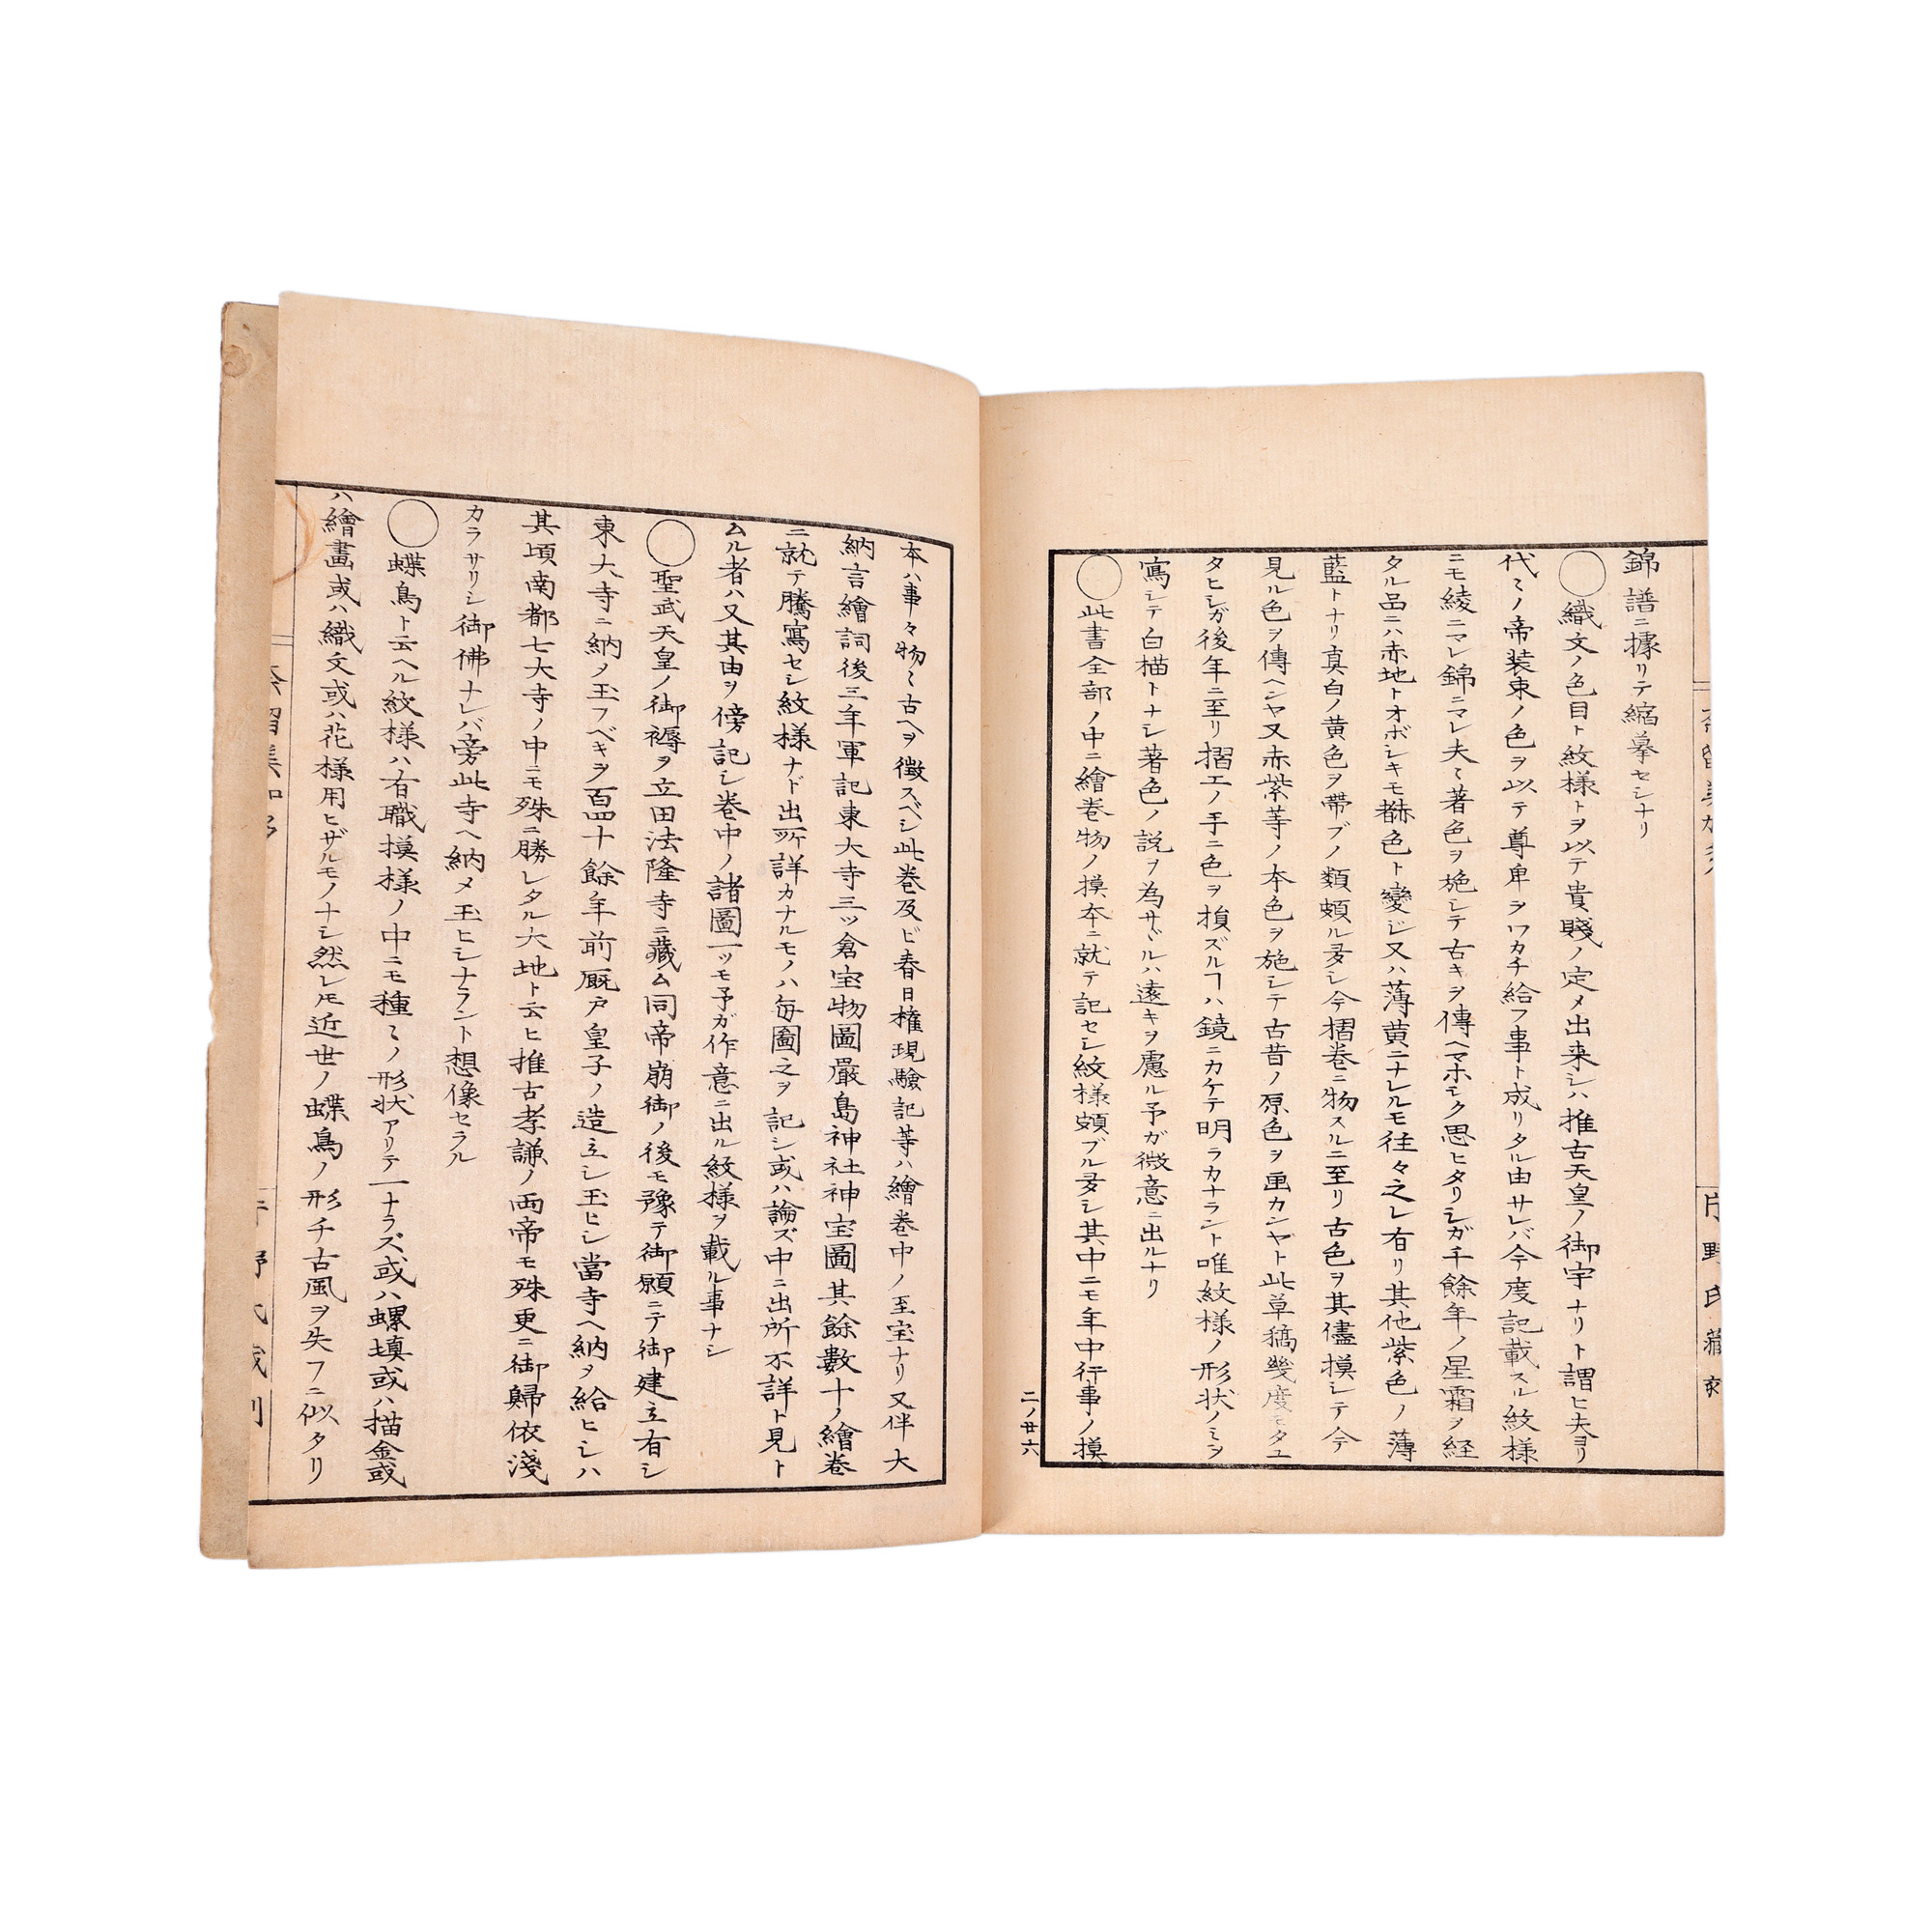 錦譜ニ據リテ縮摹セシナリ
◯織文ノ色目ト紋様トヲ以テ貴賤ノ定メ出来シハ推古天皇ノ御宇ナリト謂ヒ夫ヨリ
代〻ノ帝装束ノ色ヲ以テ尊卑ヲワカチ給フ事ト成リタル由サレバ今度記載スル紋様
ニモ綾ニマレ錦ニマレ夫〻著色ヲ施シテ古キヲ傳ヘマホシク思ヒタリシガ千餘年ノ星霜ヲ経
タル品ニハ赤地トオボシキモ赫色ト變ジ又ハ薄黄ニナレルモ往々之レ有リ其他紫色ノ薄
藍トナリ真白ノ黄色ヲ帶ブノ類頗ル多シ今摺巻ニ物スルニ至リ古色ヲ其儘摸シテ今
見ル色ヲ傳ヘンヤ又赤紫等ノ本色ヲ施シテ古昔ノ原色ヲ画カンヤト此草稿幾度モタユ
タヒシガ後年ニ至リ摺工ノ手ニ色ヲ損ズルヿハ鏡ニカケテ明ラカナラント唯紋様ノ形状ノミヲ
寫シテ白描トナシ著色ノ説ヲ為サヾルハ遠キヲ慮ル予ガ微意ニ出ルナリ
◯此書全部ノ中ニ繪巻物ノ摸本ニ就テ記セシ紋様頗ブル多シ其中ニモ年中行事ノ摸
二ノ廿六
本ハ事々物〻古ヘヲ徴スベシ此巻及ビ春日権現験記等ハ繪巻中ノ至宝ナリ又伴大
納言繪詞後三年軍記東大寺三ツ倉宝物圖嚴島神社神宝圖其餘數十ノ繪巻
ニ就テ騰寫セシ紋様ナド出所詳カナルモノハ毎圖之ヲ記シ或ハ論ズ中ニ出所不詳ト見ト
ムル者ハ又其由ヲ傍記シ巻中ノ諸圖一ツモ予ガ作意ニ出ル紋様ヲ載ル事ナシ
◯聖武天皇ノ御褥ヲ立田法隆寺ニ藏ム同帝崩御ノ後モ豫テ御願ニテ御建立有シ
東大寺ニ納ノ玉フベキヲ百四十餘年前厩戸皇子ノ造立シ玉ヒシ當寺ヘ納ヲ給ヒシハ
其頃南都七大寺ノ中ニモ殊ニ勝レタル大地ト云ヒ推古孝謙ノ両帝モ殊更ニ御歸依淺
カラサリシ御佛ナレバ旁此寺ヘ納メ玉ヒシナラント想像セラル
◯蝶鳥ト云ヘル紋様ハ有職摸様ノ中ニモ種〻ノ形状アリテ一ナラズ或ハ螺填或ハ描金或
ハ繪畫或ハ織文或ハ花様用ヒザルモノナシ然レ𪜈近世ノ蝶鳥ノ形チ古風ヲ失フニ似タリ